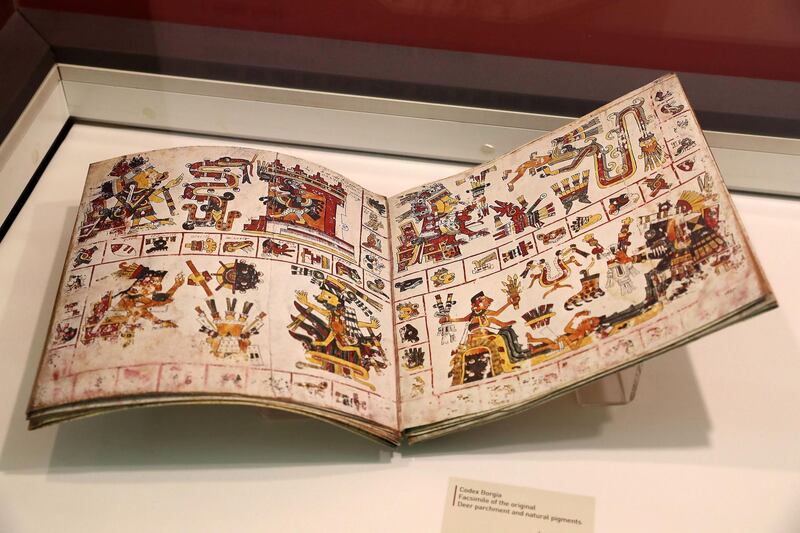 Codex Borgia
Facsimile of the original
Deer parchment and natural pigments